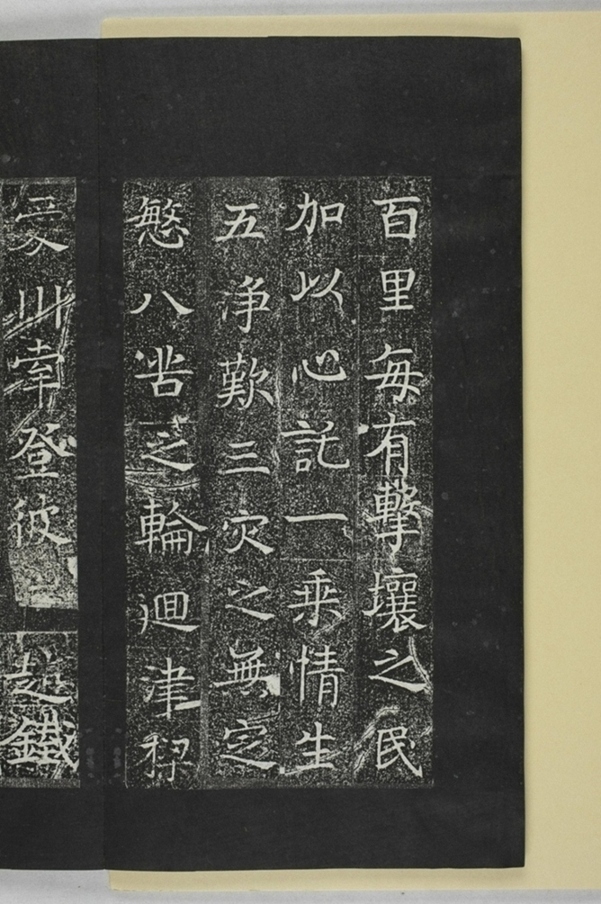 百里每有擊壤之民
加以心託一乗情生
五浄歎三灾之無定
慜八苦之輪迴津
索登彼鐵